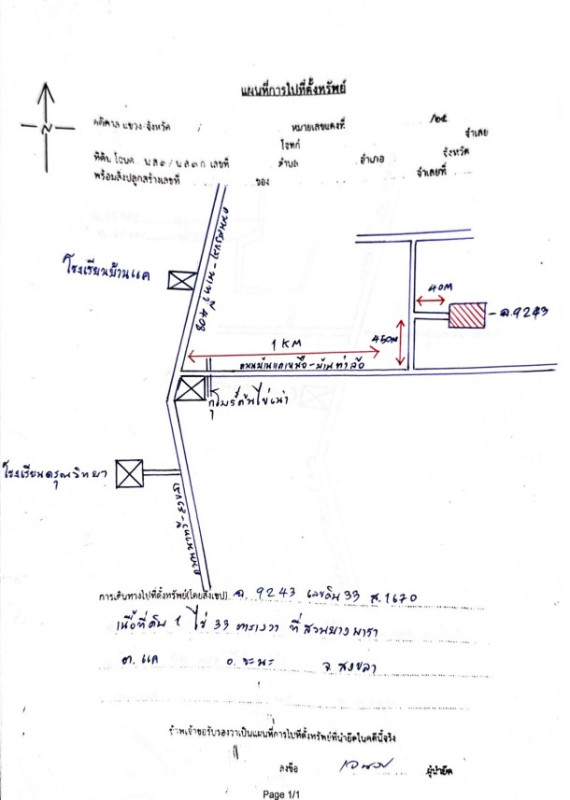 แผนที่การไปที่ตั้งทรัพย์
N
คดีศาลแขวง-จังหวัด หมายเลขแดงที่ /๒๕
โจทก์ จำเลย
ที่ดิน โฉนด น.ส.๓/น.ส.๓ ก. เลขที่ ตำบล อำเภอ จังหวัด
พร้อมสิ่งปลูกสร้างเลขที่ ของ จำเลยที่
โรงเรียนบ้านแค
408
40M
ฉ.9243
1 KM
450M
กุโบร์ต้นไข่เน่า
โรงเรียนดรุณวิทยา
การเดินทางไปที่ตั้งทรัพย์(โดยสังเขป) ฉ. 9243 เลขดิน 33 ส.1670
เนื้อที่ดิน 1 ไร่ 33 ตารางวา ที่สวนยางพารา
ต. แค อ. จะนะ จ. สงขลา
ข้าพเจ้าขอรับรองว่าเป็นแผนที่การไปที่ตั้งทรัพย์ที่นำยึดในคดีนี้จริง
ลงชื่อ ผู้นำยึด
Page 1/1